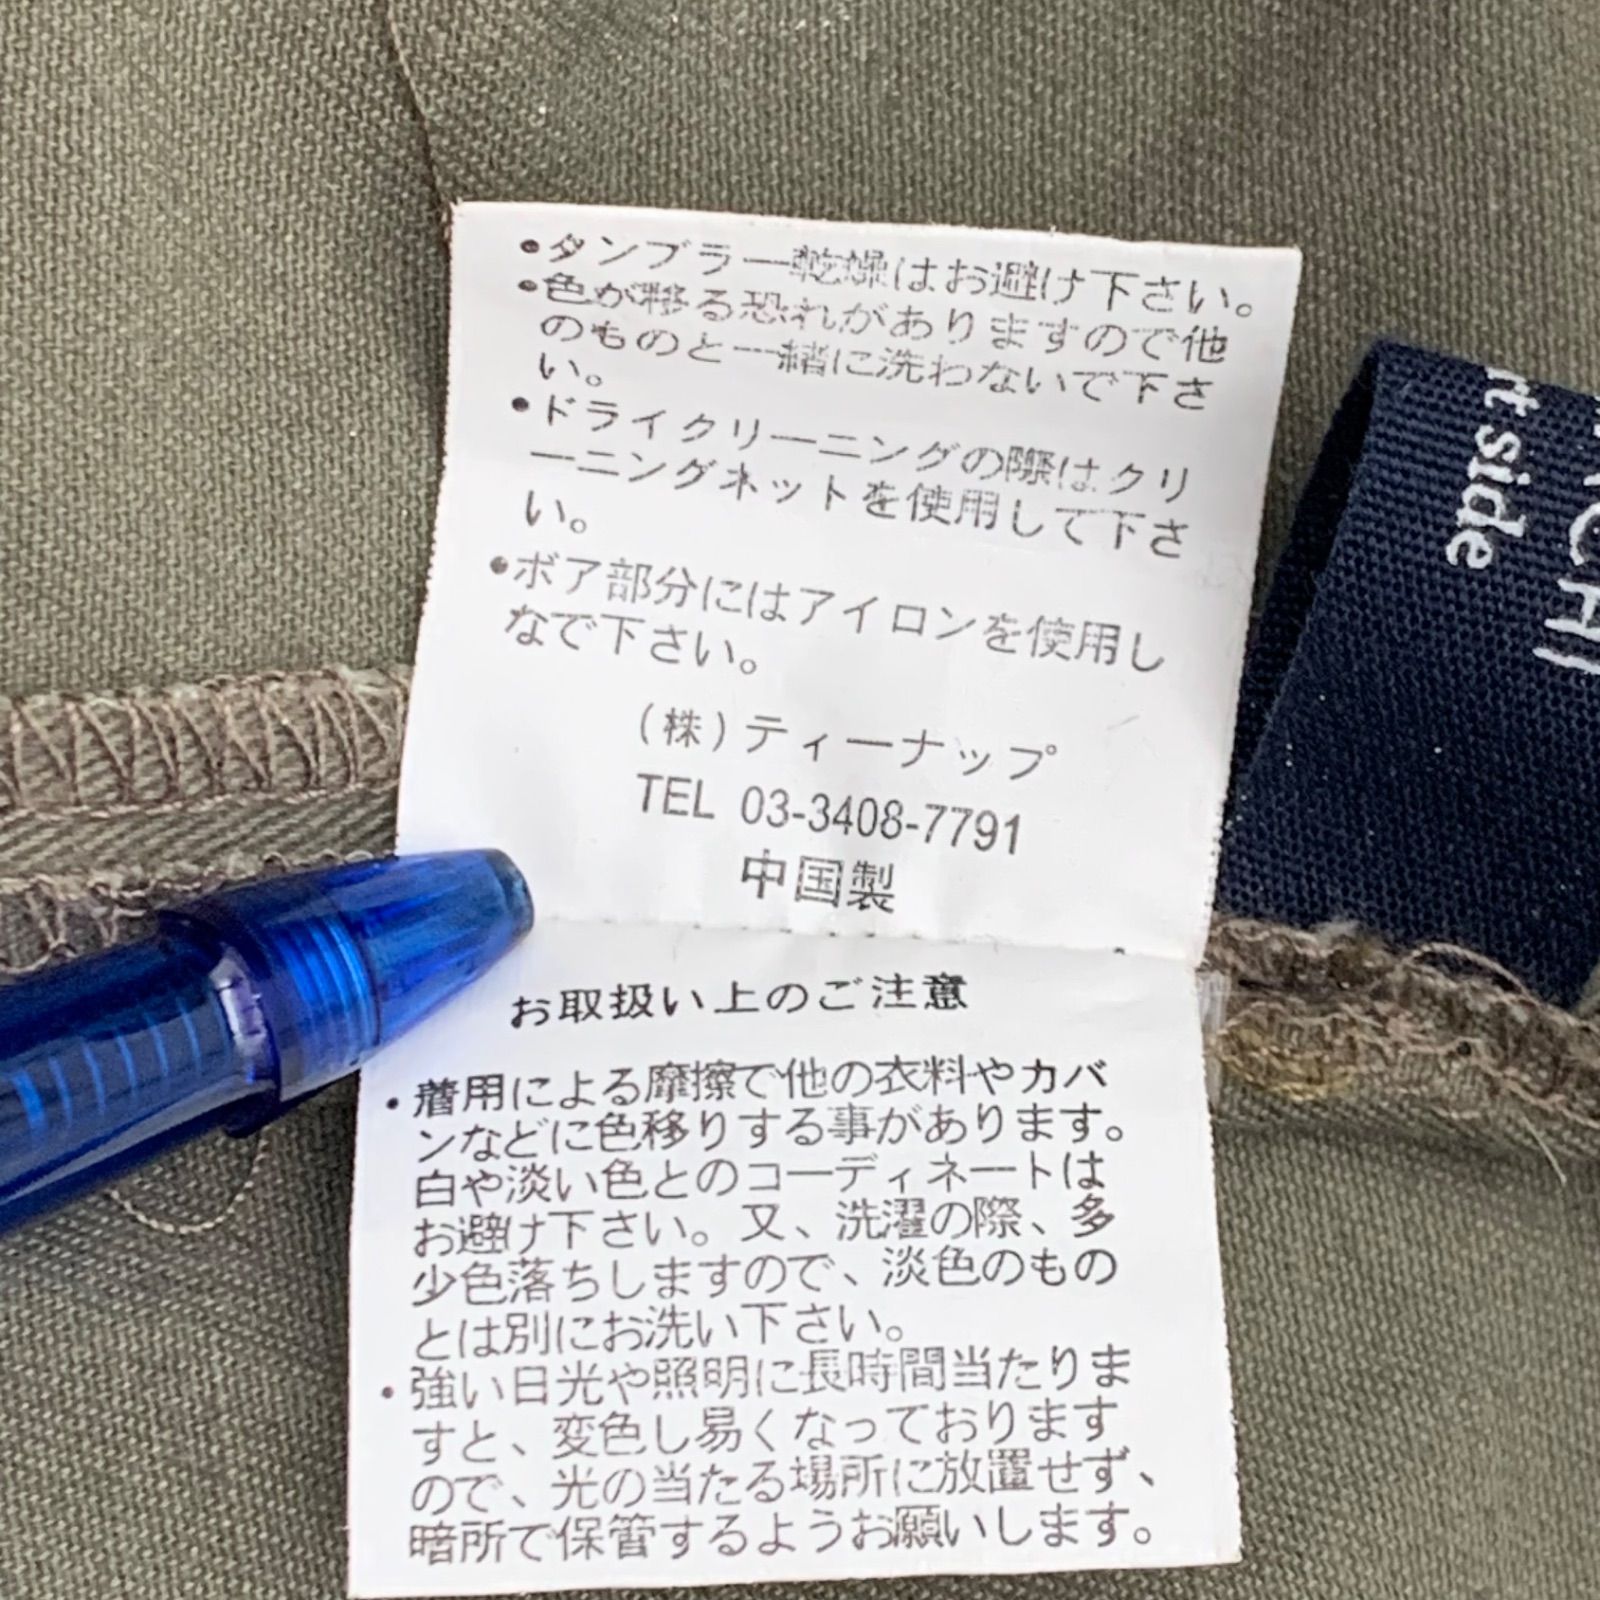 •タンブラー乾燥はお避け下さい。
•色が移る恐れがありますので他
のものと一緒に洗わないで下さ
い。
•ドライクリーニングの際はクリ
ーニングネットを使用して下さ
い。
•ボア部分にはアイロンを使用し
なで下さい。
(株)ティーナップ
TEL 03-3408-7791
中国製
お取扱い上のご注意
•着用による摩擦で他の衣料やカバ
ンなどに色移りする事があります。
白や淡い色とのコーディネートは
お避け下さい。又、洗濯の際、多
少色落ちしますので、淡色のもの
とは別にお洗い下さい。
•強い日光や照明に長時間当たりま
すと、変色し易くなっております
ので、光の当たる場所に放置せず、
暗所で保管するようお願いします。
side